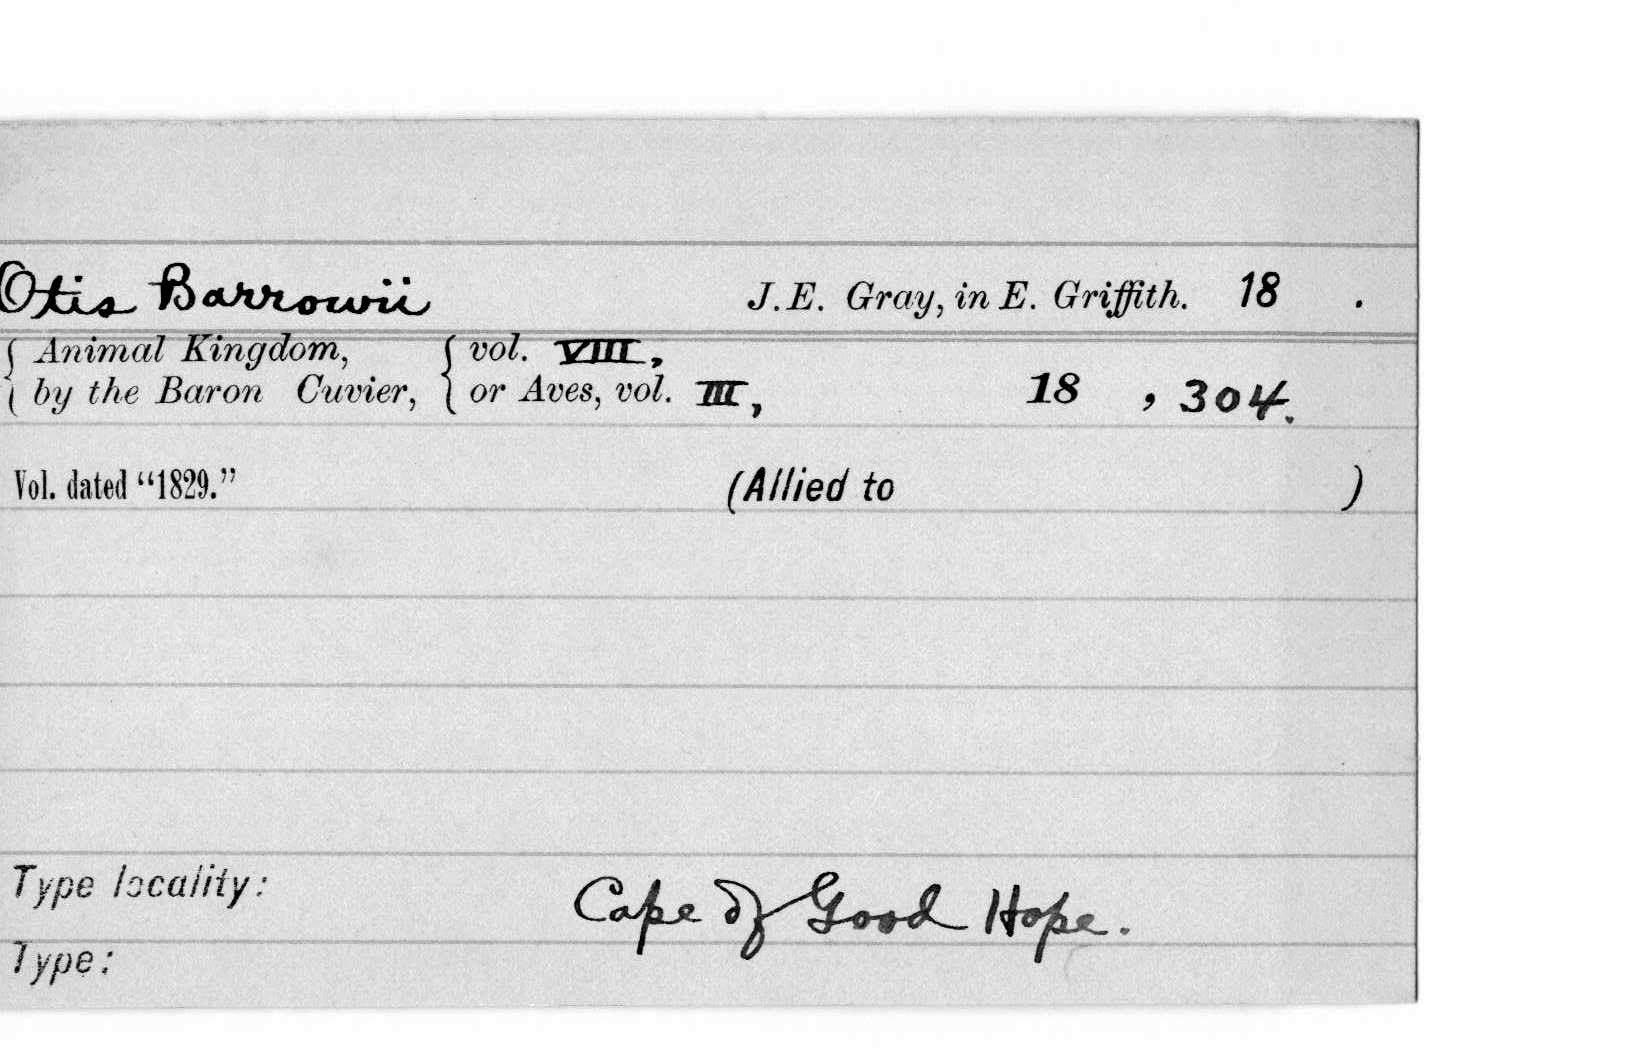 Otis Barrowii J.E. Gray, in E. Griffith. 18 .
{ Animal Kingdom, { vol. VIII,
by the Baron Cuvier, or Aves, vol. III, 18 , 304.
Vol. dated “1829.” (Allied to )
Type locality: Cape of Good Hope.
Type: